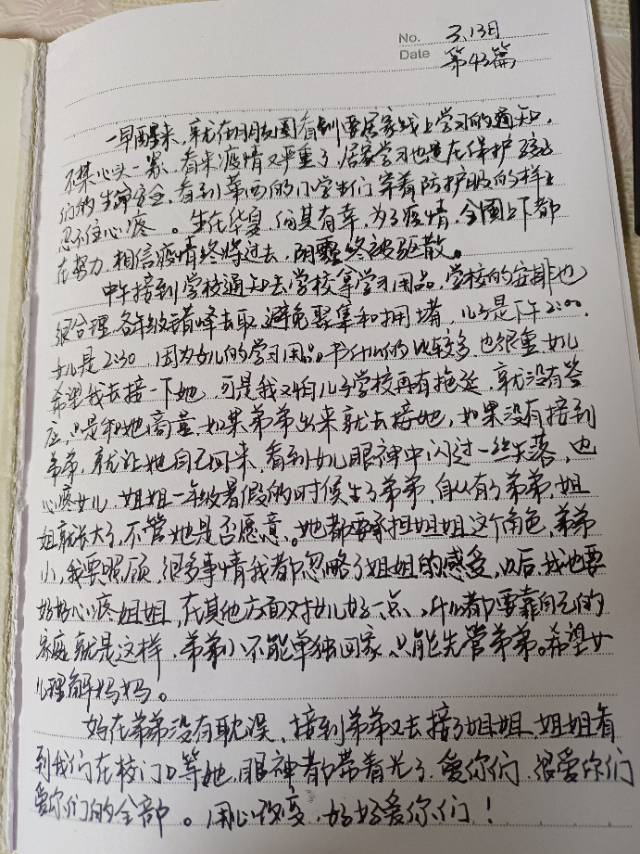 No. 3.13日
Date 第43篇
一早醒来,就在朋友圈看到要居家线上学习的通知,
不禁心头一紧,看来疫情又严重了,居家学习也是在保护孩子
们的生命安全,看到莱西的小学生们穿着防护服的样子
忍不住心疼。生在华夏,何其有幸,为了疫情,全国上下都
在努力,相信疫情终将过去,阴霾终被驱散。
中午接到学校通知去学校拿学习用品,学校的安排也
很合理,各年级错峰去取,避免聚集和拥堵,儿子是下午2:00,
女儿是2:30,因为女儿的学习用品书什么的比较多,也很重,女儿
希望我去接一下她,可是我又怕儿子学校再有拖延,就没有答
应,只是和她商量,如果弟弟出来就去接她,如果没有接到
弟弟,就让她自己回来,看到女儿眼神中闪过一丝失落,也
心疼女儿,姐姐一年级暑假的时候生了弟弟,自从有了弟弟,姐
姐就长大了,不管她是否愿意。她都要承担姐姐这个角色,弟弟
小,我要照顾,很多事情我都忽略了姐姐的感受,以后,我也要
好好心疼姐姐,在其他方面对女儿好一点、什么都要靠自己的
家庭就是这样,弟弟小不能单独回家,只能先管弟弟。希望女
儿理解妈妈。
好在弟弟没有耽误,接到弟弟又去接了姐姐,姐姐看
到我们在校门口等她,眼神都带着光了,爱你们,很爱你们
爱你们的全部。用心改变,好好爱你们!